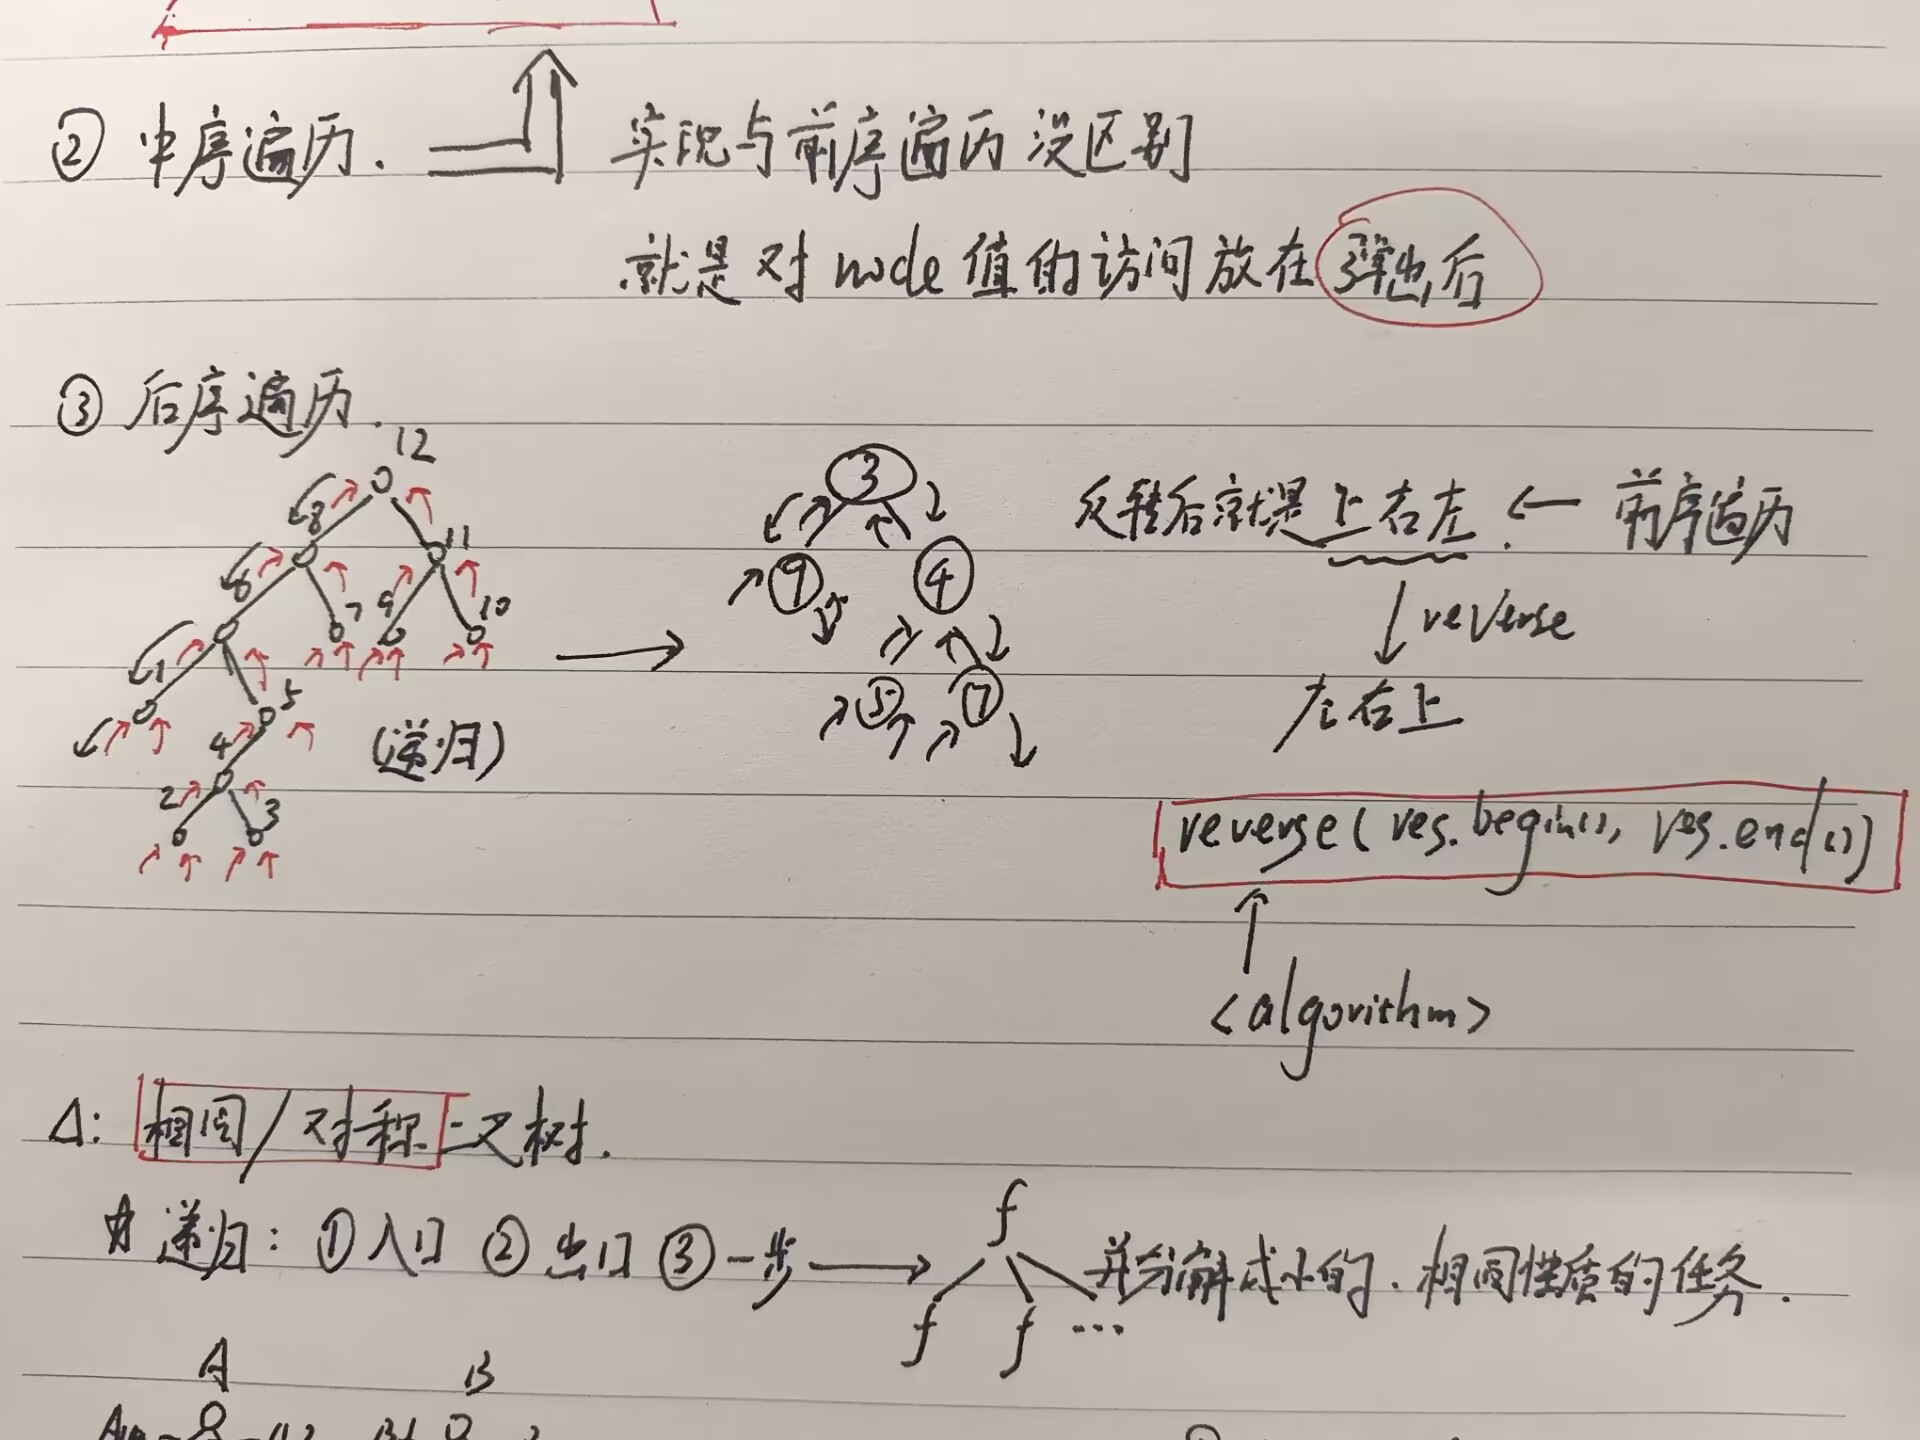 ② 中序遍历. 实现与前序遍历没区别
就是对node值的访问放在弹出后
③ 后序遍历.
12
8
11
6
7
9
10
1
5
4
2
3
(递归)
3
9
4
5
7
反转后就是上右左. ← 前序遍历
reverse
左右上
reverse(res.begin(), res.end())
<algorithm>
Δ: 相同/对称二叉树.
递归: ①入口 ②出口 ③一步 → f 并分解成小的、相同性质的任务.
f f ...
A B